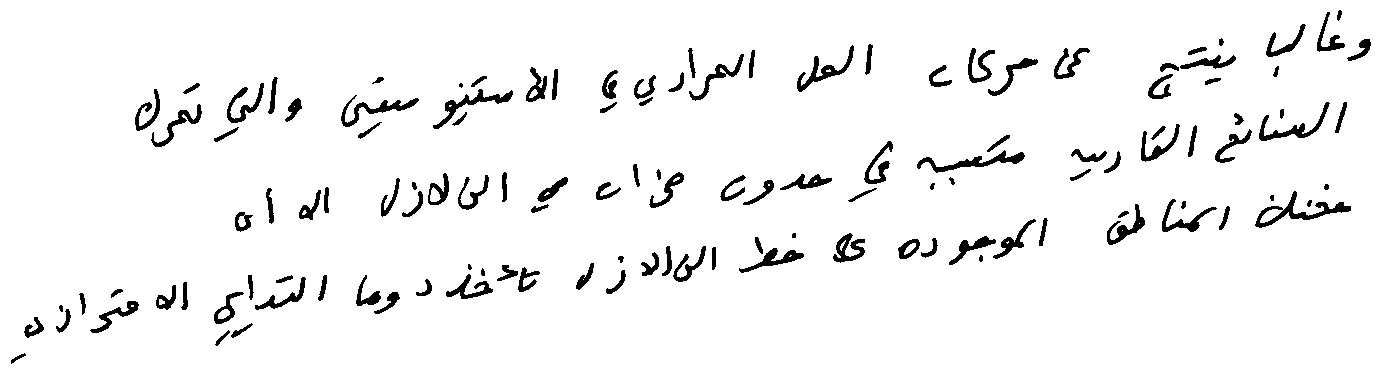 وغالبا ينتج عن حركات الحمل الحراري في الأستينوسفير والتي تحرك
الصفائح القارية متسببه في حدوث هزات من الزلازل الا أن
مختلف المناطق الموجوده على خط الزلازل تأخذ دوما التدابير الاحترازيه